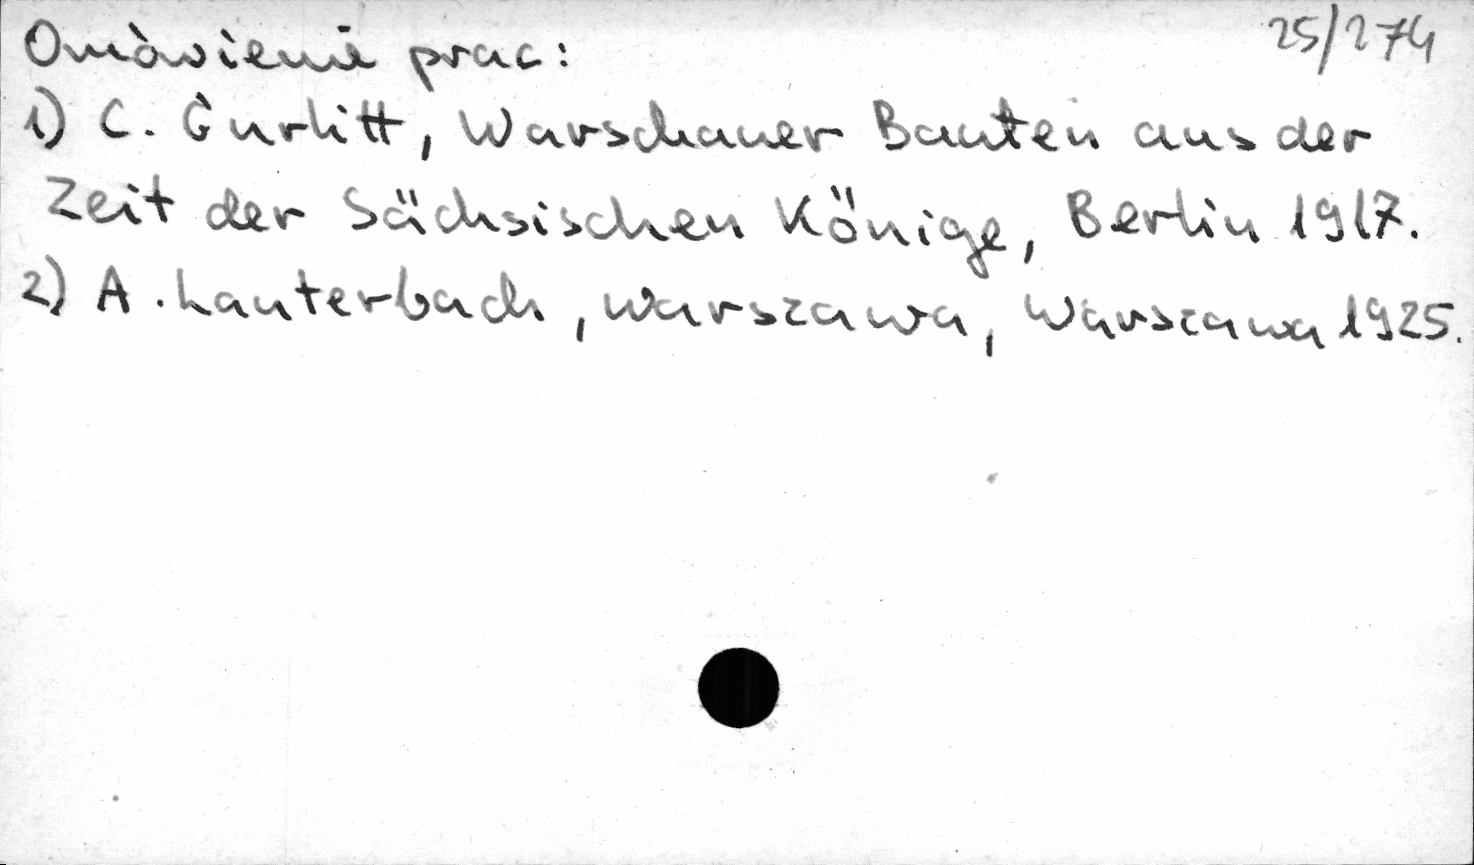 25/274
Omówienie prac:
1) C. Gurlitt, Warschauer Bauten aus der
Zeit der Sächsischen Könige, Berlin 1917.
2) A. Lauterbach, Warszawa, Warszawa 1925.